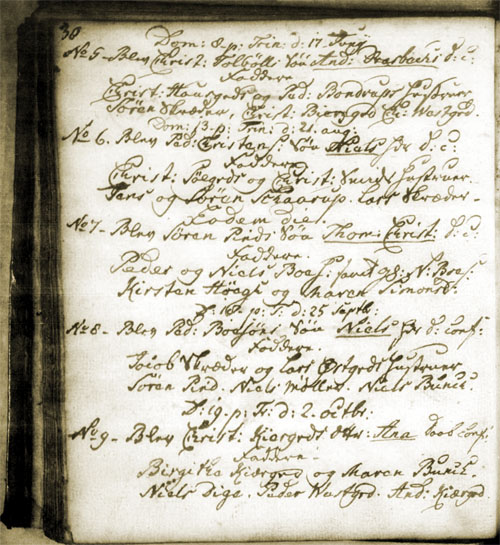 38
Dom: 8. p: Trin: d: 17. July
No 5 - Blev Christ: Tolbøls Søn And: d: c:
Faddere
Christ: Hausgrds og Pad: Bondrups Hustruer
Søren Skræder, Christ: Biergrd Ch: Wastgrd.
Dom: 13. p: Trin: d: 21. aug:
No 6. Blev Pad: Christens: Søn Niels d: c:
Faddere
Christ: og Christ: Hustruer
Jens og Søren Schaarup. Lars Skræder -
Eadem die
No 7 - Blev Søren Pinds Søn Thom: Christ: d: c:
Faddere.
Peder og Niels Boes: N: Boes:
Kirsten Høegs og Maren Simonsd:
D: 18. p: T: d: 25 Septb:
No 8 - Blev Pad: Boesøns Søn Niels d: conf:
Faddere.
Jacob Skræder og Lars Østgrds Hustruer
Søren Pind. Niels Møller. Niels Bunck.
D: 19. p: Tr: d: 2. Octbr:
No 9 - Blev Christ: Kiergrds Dttr: Ana Daab conf:
Faddere -
Birgitha Kiærgrd og Maren Bunck.
Niels Dige. Peder Wastgrd. And: Kiærgrd.